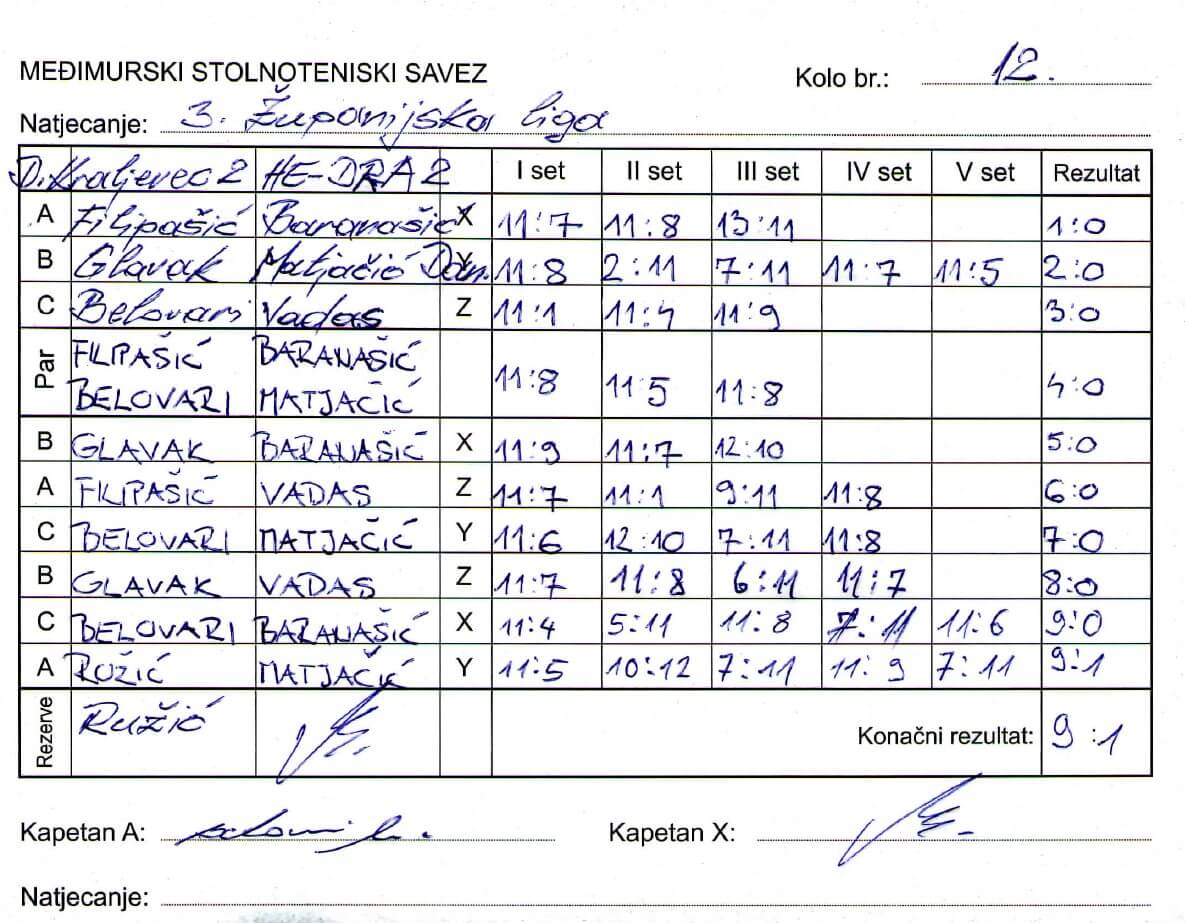 MEĐIMURSKI STOLNOTENISKI SAVEZ
Kolo br.: 12.
Natjecanje: 3. Županijska liga
D. Kraljevec 2 HE-DRA 2 I set II set III set IV set V set Rezultat
A Filipašić Baranašić X 11:7 11:8 13:11 1:0
B Glavak Matjačić Dan. Y 11:8 2:11 7:11 11:7 11:5 2:0
C Belovari Vadas Z 11:1 11:4 11:9 3:0
Par FILIPAŠIĆ BARANAŠIĆ
BELOVARI MATJAČIĆ 11:8 11:5 11:8 4:0
B GLAVAK BARANAŠIĆ X 11:9 11:7 12:10 5:0
A FILIPAŠIĆ VADAS Z 11:7 11:1 9:11 11:8 6:0
C BELOVARI MATJAČIĆ Y 11:6 12:10 7:11 11:8 7:0
B GLAVAK VADAS Z 11:7 11:8 6:11 11:7 8:0
C BELOVARI BARANAŠIĆ X 11:4 5:11 11:8 7:11 11:6 9:0
A RUŽIĆ MATJAČIĆ Y 11:5 10:12 7:11 11:9 7:11 9:1
Rezerve Ružić Konačni rezultat: 9:1
Kapetan A: Kapetan X:
Natjecanje: